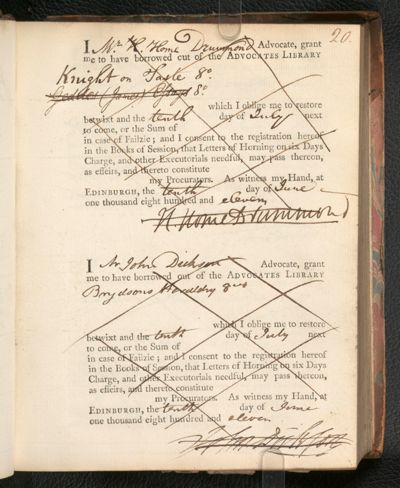 20.
I Mr. H. Home Drummond Advocate, grant
me to have borrowed out of the ADVOCATES LIBRARY
Knight on Taste 8o.
Geddes (James) Essays 8o.
which I oblige me to restore
betwixt and the tenth day of July next
to come, or the Sum of
in case of Failzie; and I consent to the registration hereof
in the Books of Session, that Letters of Horning on six Days
Charge, and other Executorials needful, may pass thereon,
as effeirs, and thereto constitute
my Procurators. As witness my Hand, at
EDINBURGH, the tenth day of June
one thousand eight hundred and eleven
H Home Drummond
I Mr John Dickson Advocate, grant
me to have borrowed out of the ADVOCATES LIBRARY
Brydsons Heraldry 8vo
which I oblige me to restore
betwixt and the tenth day of July next
to come, or the Sum of
in case of Failzie; and I consent to the registration hereof
in the Books of Session, that Letters of Horning on six Days
Charge, and other Executorials needful, may pass thereon,
as effeirs, and thereto constitute
my Procurators. As witness my Hand, at
EDINBURGH, the tenth day of June
one thousand eight hundred and eleven
John Dickson